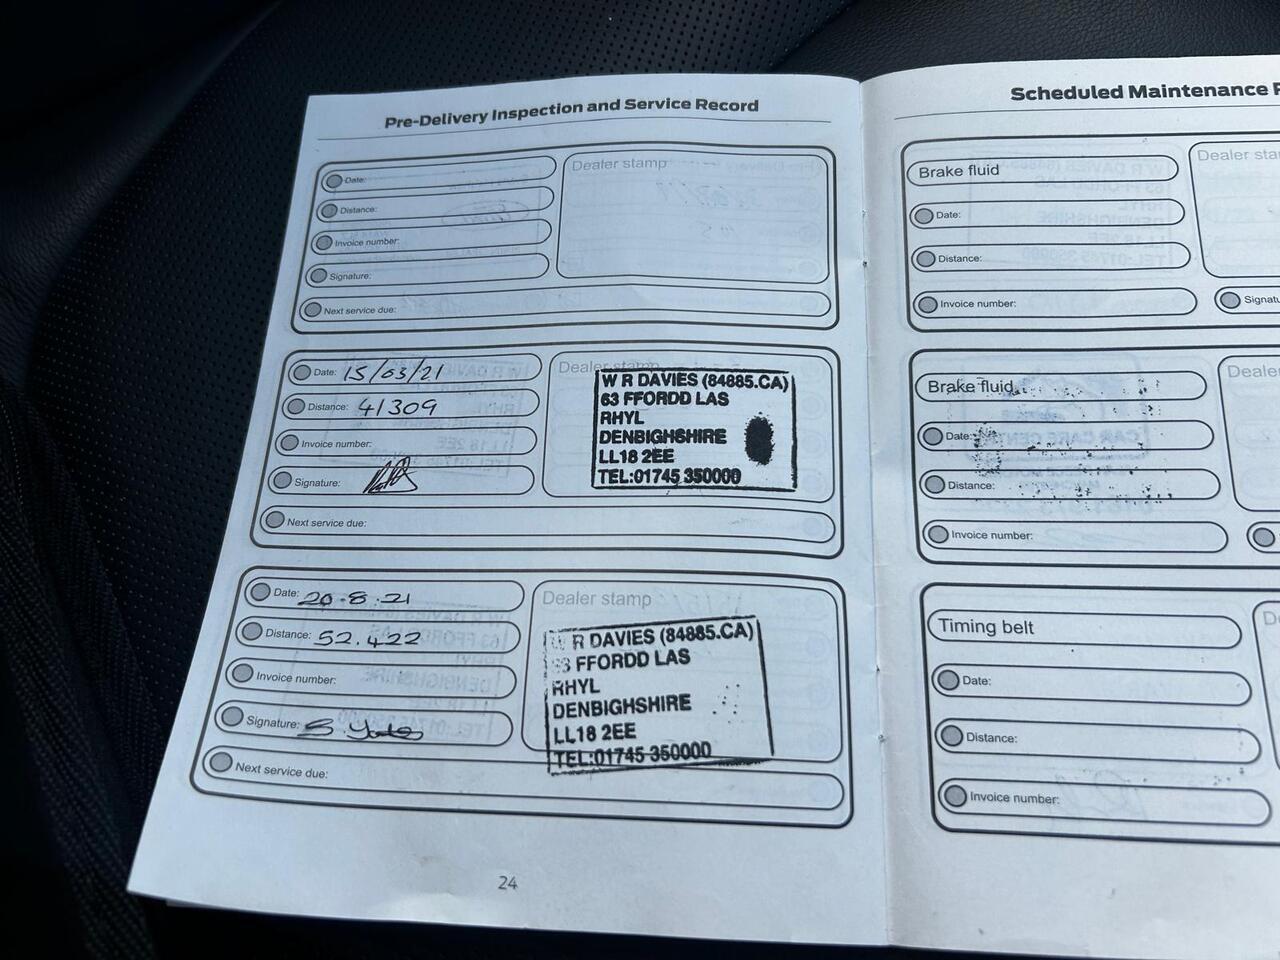 Pre-Delivery Inspection and Service Record
Date:
Distance:
Invoice number:
Signature:
Next service due:
Dealer stamp
Date: 15/03/21
Distance: 41309
Invoice number:
Signature:
Next service due:
Dealer stamp
W R DAVIES (84885.CA)
63 FFORDD LAS
RHYL
DENBIGHSHIRE
LL18 2EE
TEL:01745 350000
Date: 20.8.21
Distance: 52.422
Invoice number:
Signature: S. Yates
Next service due:
Dealer stamp
W R DAVIES (84885.CA)
63 FFORDD LAS
RHYL
DENBIGHSHIRE
LL18 2EE
TEL:01745 350000
24
Scheduled Maintenance
Brake fluid
Date:
Distance:
Invoice number:
Dealer
Brake fluid
Date:
Distance:
Invoice number:
Dealer
Timing belt
Date:
Distance:
Invoice number: